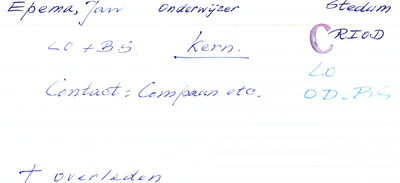 Epema, Jan onderwijzer Stedum
LO + BS. Kern. CRIOD
LO
Contact: Compaan etc. OD-BS
† overleden